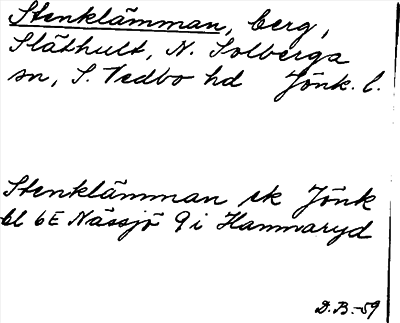 Stenklämman, berg,
Släthult, N. Solberga
sn, S. Vedbo hd Jönk. l.
Stenklämman ek Jönk
bl 6E Nässjö 9 i Hammaryd
D.B.-59